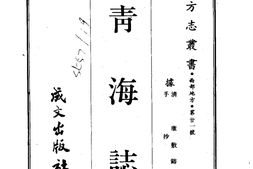 方志叢書·西部地方·第廿一號
據清康敷鎔手抄
青海誌
成文出版社